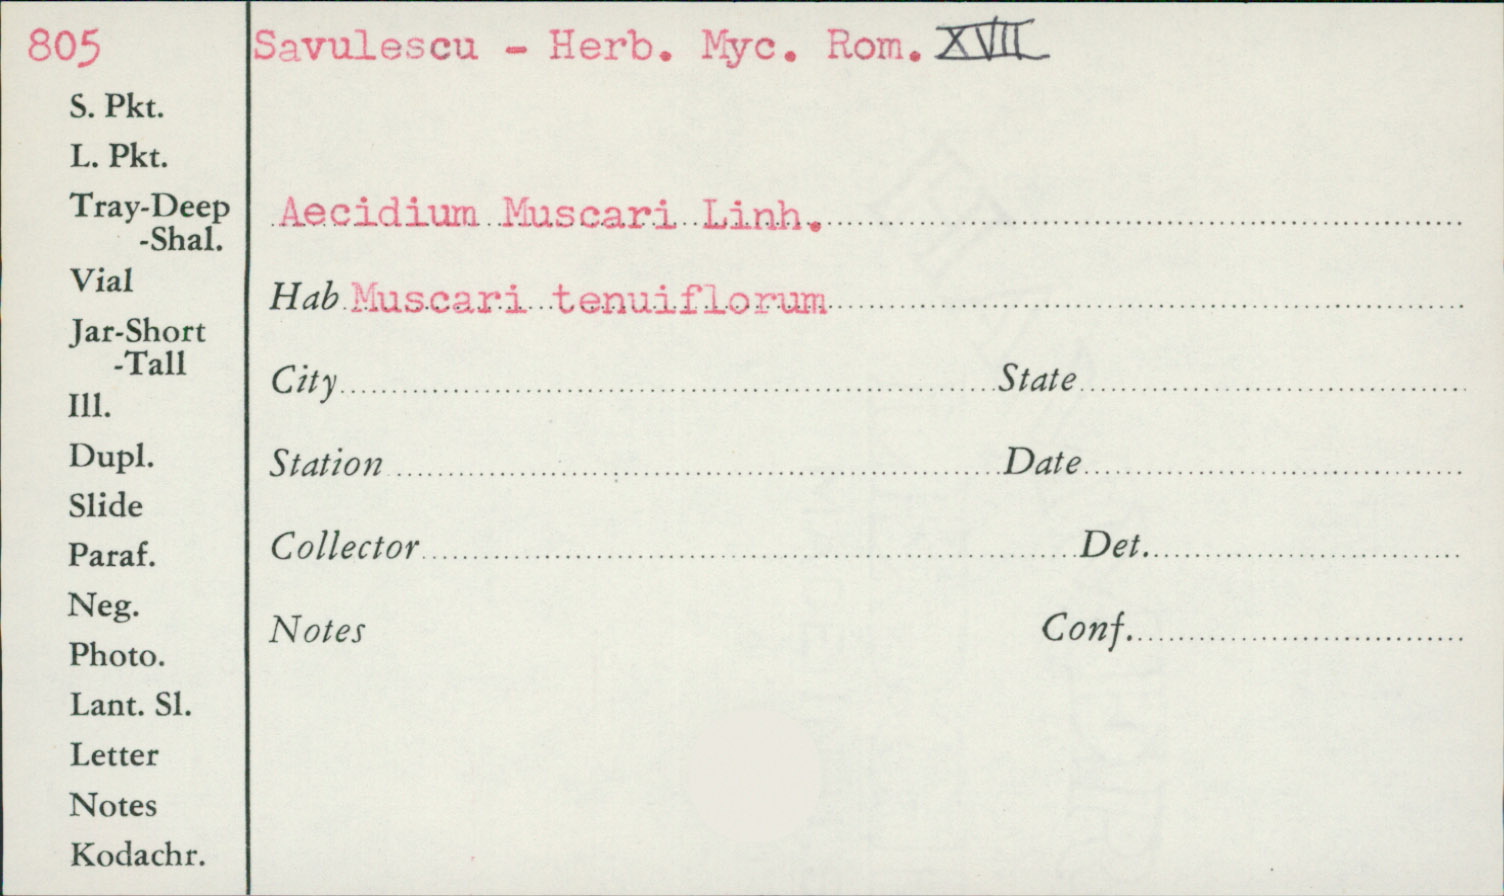 805
Savulescu - Herb. Myc. Rom. XVII
S. Pkt.
L. Pkt.
Tray-Deep
-Shal.
Vial
Jar-Short
-Tall
Ill.
Dupl.
Slide
Paraf.
Neg.
Photo.
Lant. Sl.
Letter
Notes
Kodachr.
Aecidium Muscari Linh.
Hab Muscari tenuiflorum
City State
Station Date
Collector Det.
Notes Conf.